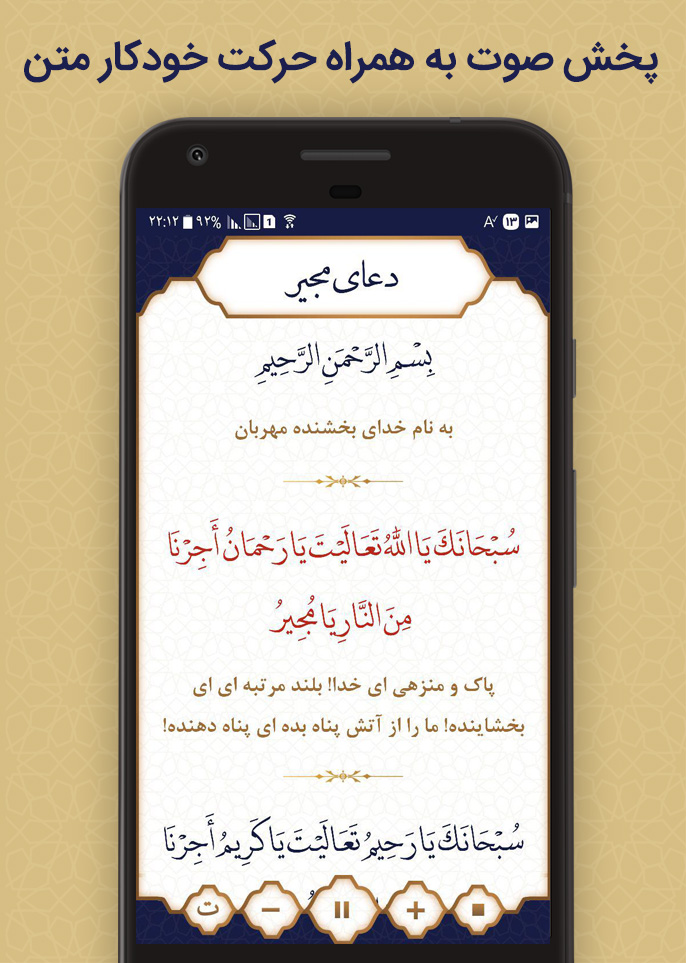 پخش صوت به همراه حرکت خودکار متن
۲۲:۱۲ ۹۲% 1 A ۱۳
دعای مجیر
بِسْمِ الرَّحْمَنِ الرَّحِيمِ
به نام خدای بخشنده مهربان
سُبْحَانَكَ يَا اللَّهُ تَعَالَيْتَ يَا رَحْمَانُ أَجِرْنَا
مِنَ النَّارِ يَا مُجِيرُ
پاک و منزهی ای خدا! بلند مرتبه ای ای
بخشاینده! ما را از آتش پناه بده ای پناه دهنده!
سُبْحَانَكَ يَا رَحِيمُ تَعَالَيْتَ يَا كَرِيمُ أَجِرْنَا
ت